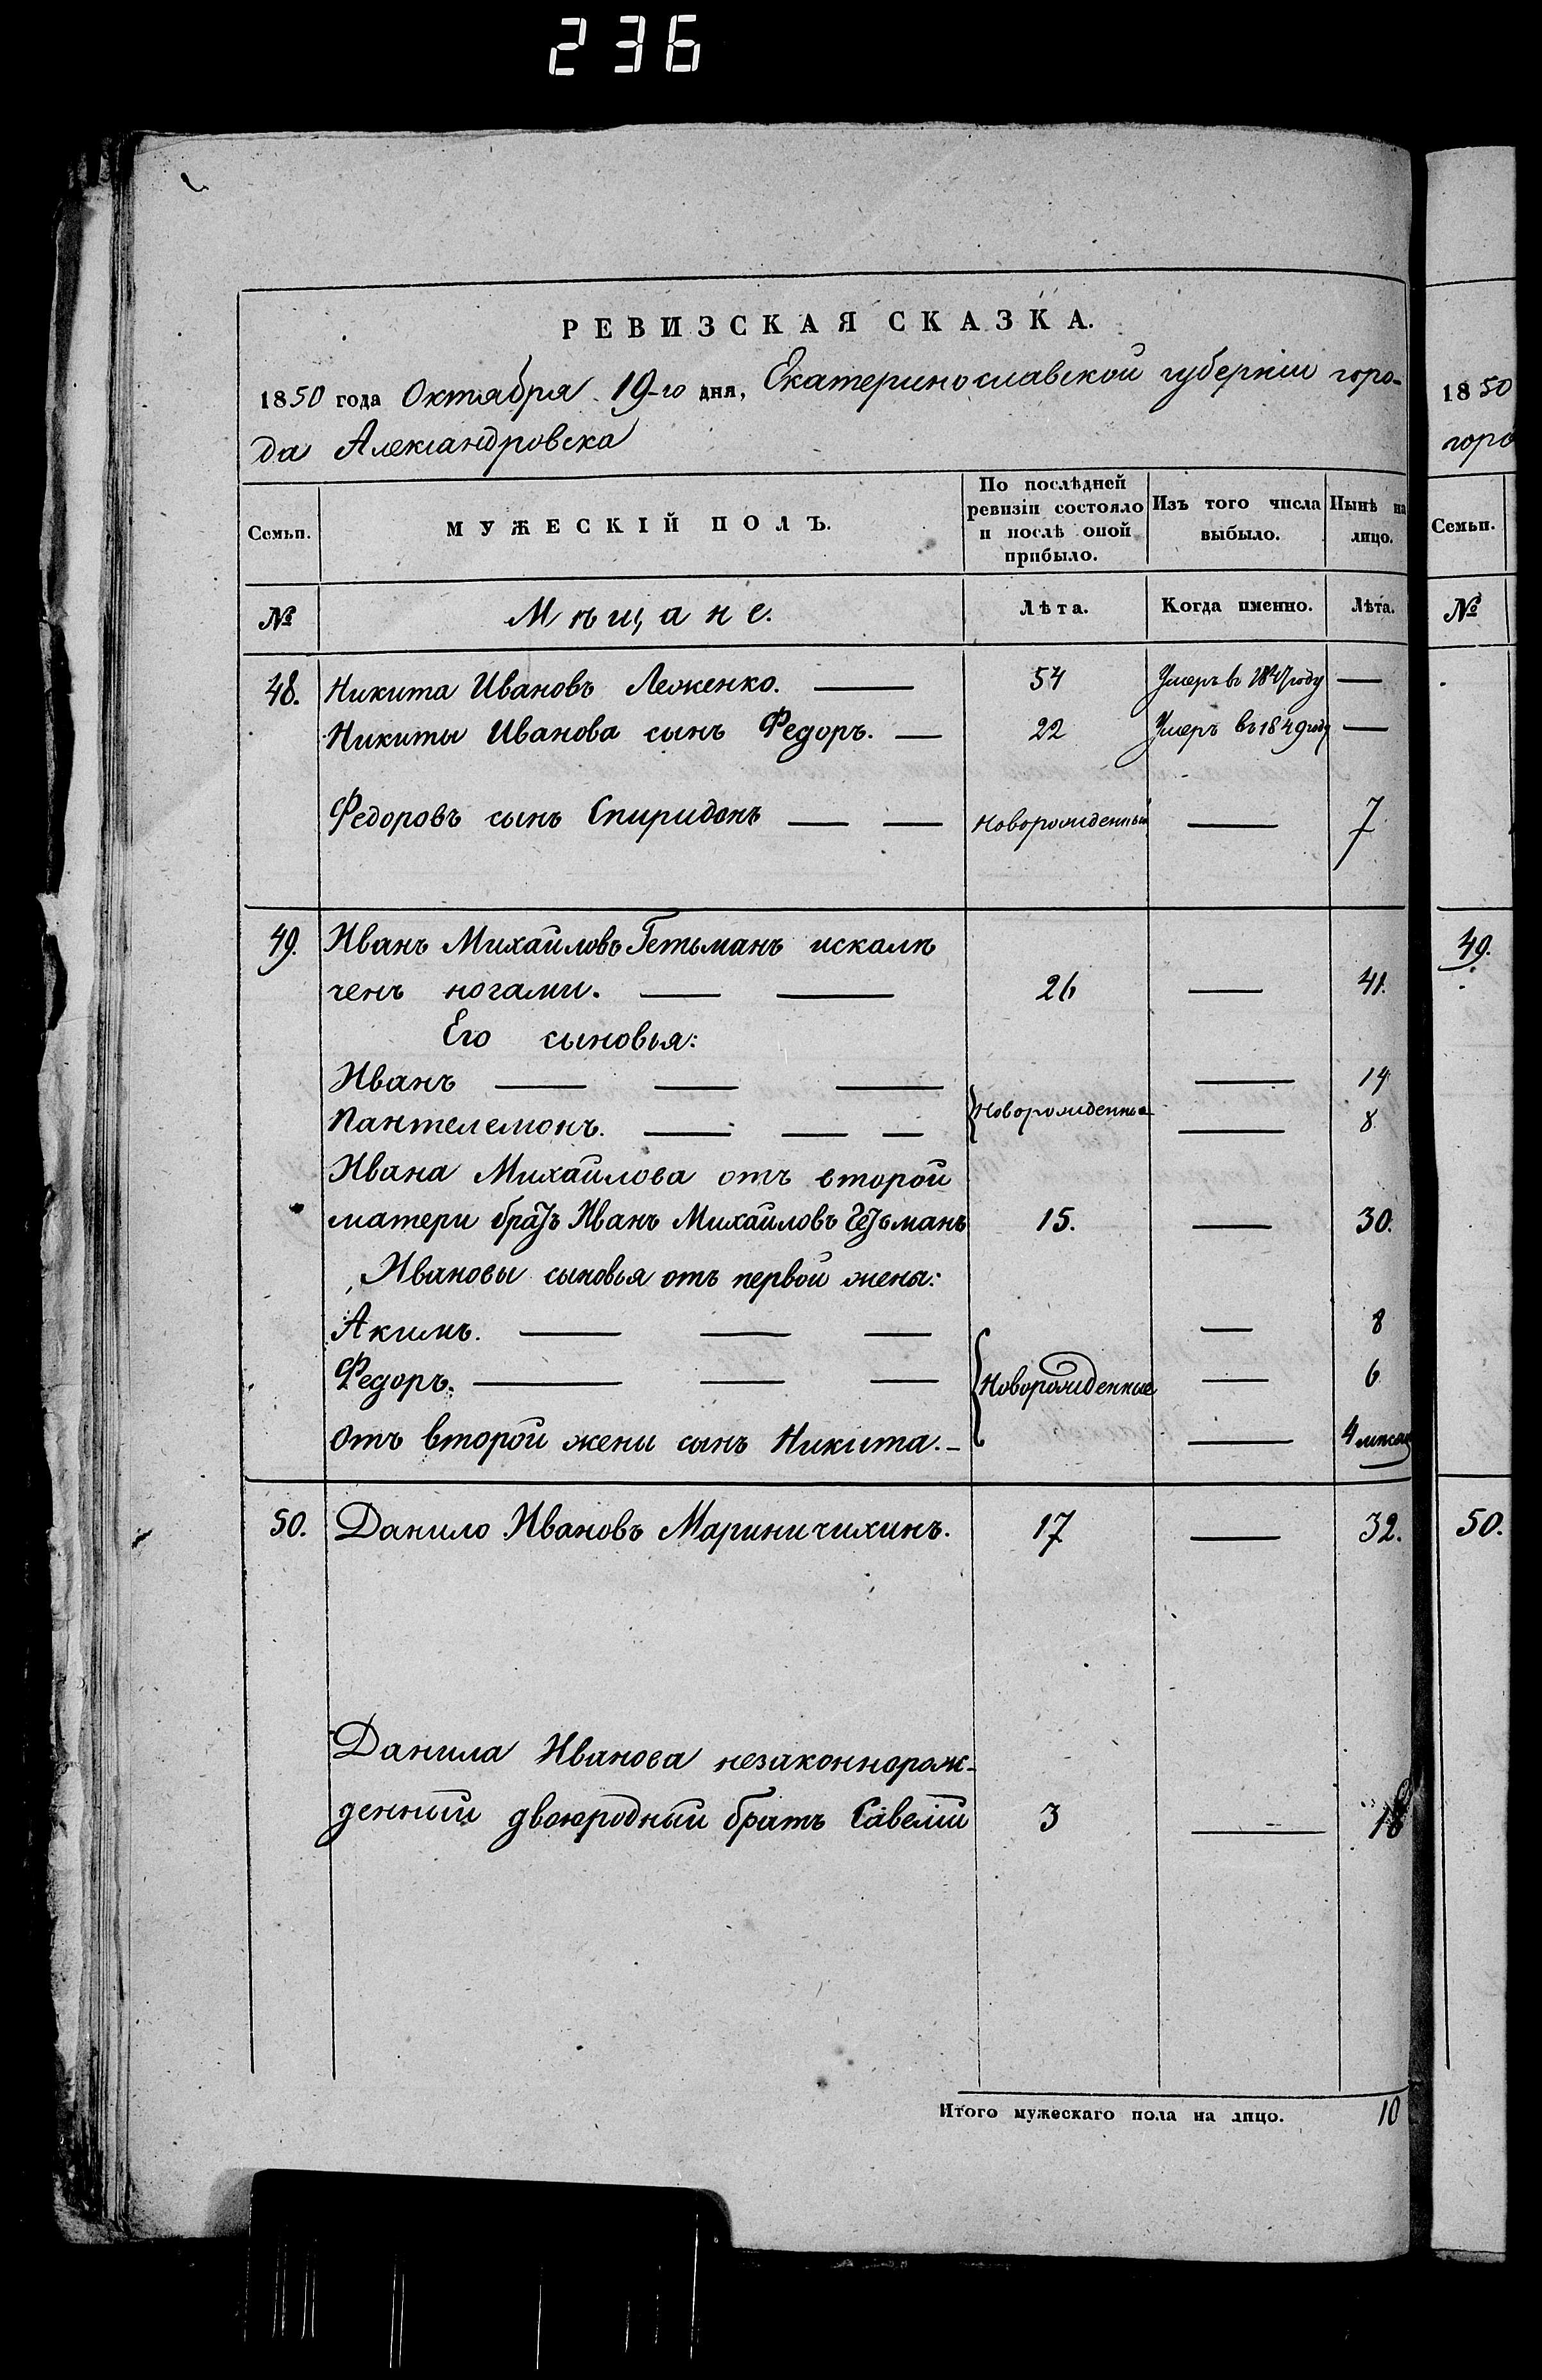 236
РЕВИЗСКАЯ СКАЗКА.
1850 года Октября 19-го дня, Екатеринославской губерніи горо-
да Александровска
Семьи.
МУЖЕСКІЙ ПОЛЪ.
По послѣдней ревизіи состояло и послѣ оной прибыло.
Изъ того числа выбыло.
Нынѣ на лицо.
№
Мѣщане.
Лѣта.
Когда именно.
Лѣта.
48. Никита Ивановъ Леженко. — 54 Умеръ въ 1847 году —
Никиты Иванова сынъ Федоръ. — 22 Умеръ въ 1849 году —
Федоровъ сынъ Спиридонъ — — Новорожденный — 7
49. Иванъ Михайловъ Гетьманъ искалѣ
ченъ ногами. — — 26 — 41.
Его сыновья:
Иванъ — — — — 14
Новорожденные
Пантелемонъ. — — — — 8.
Ивана Михайлова отъ второй
матери братъ Иванъ Михайловъ Гетьманъ 15. — 30.
Ивановы сыновья отъ первой жены:
Акимъ. — — — — 8
Федоръ. — — — Новорожденные — 6
Отъ второй жены сынъ Никита. — — 4 мѣсяц
50. Данило Ивановъ Мариничихинъ. 17 — 32.
Данила Иванова незаконнорож-
денный двоюродный братъ Савелій 3 — 18
Итого мужескаго пола на лицо. 10
1850
горо
Семьи.
№
49.
50.